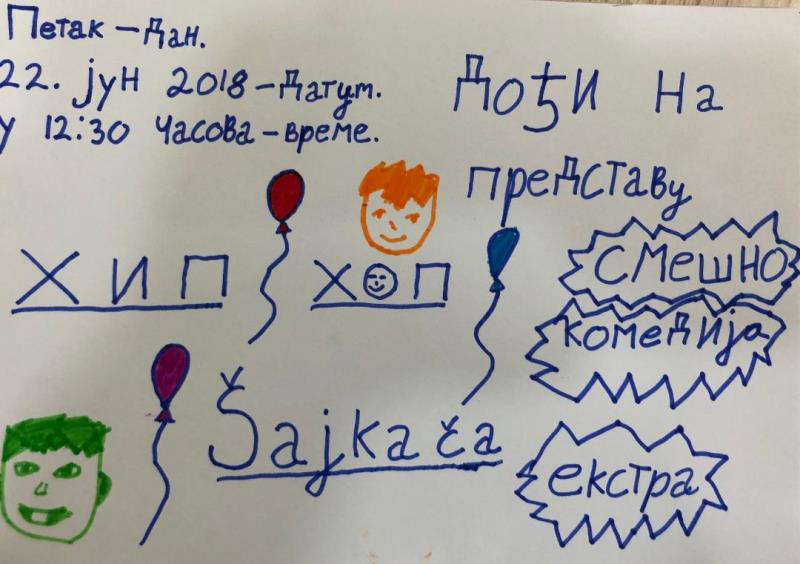 Петак – дан.
22. јун 2018 – датум.
у 12:30 часова – време.
Дођи на
представу
ХИП ХОП
Šajkača
СМЕШНО
комедија
екстра